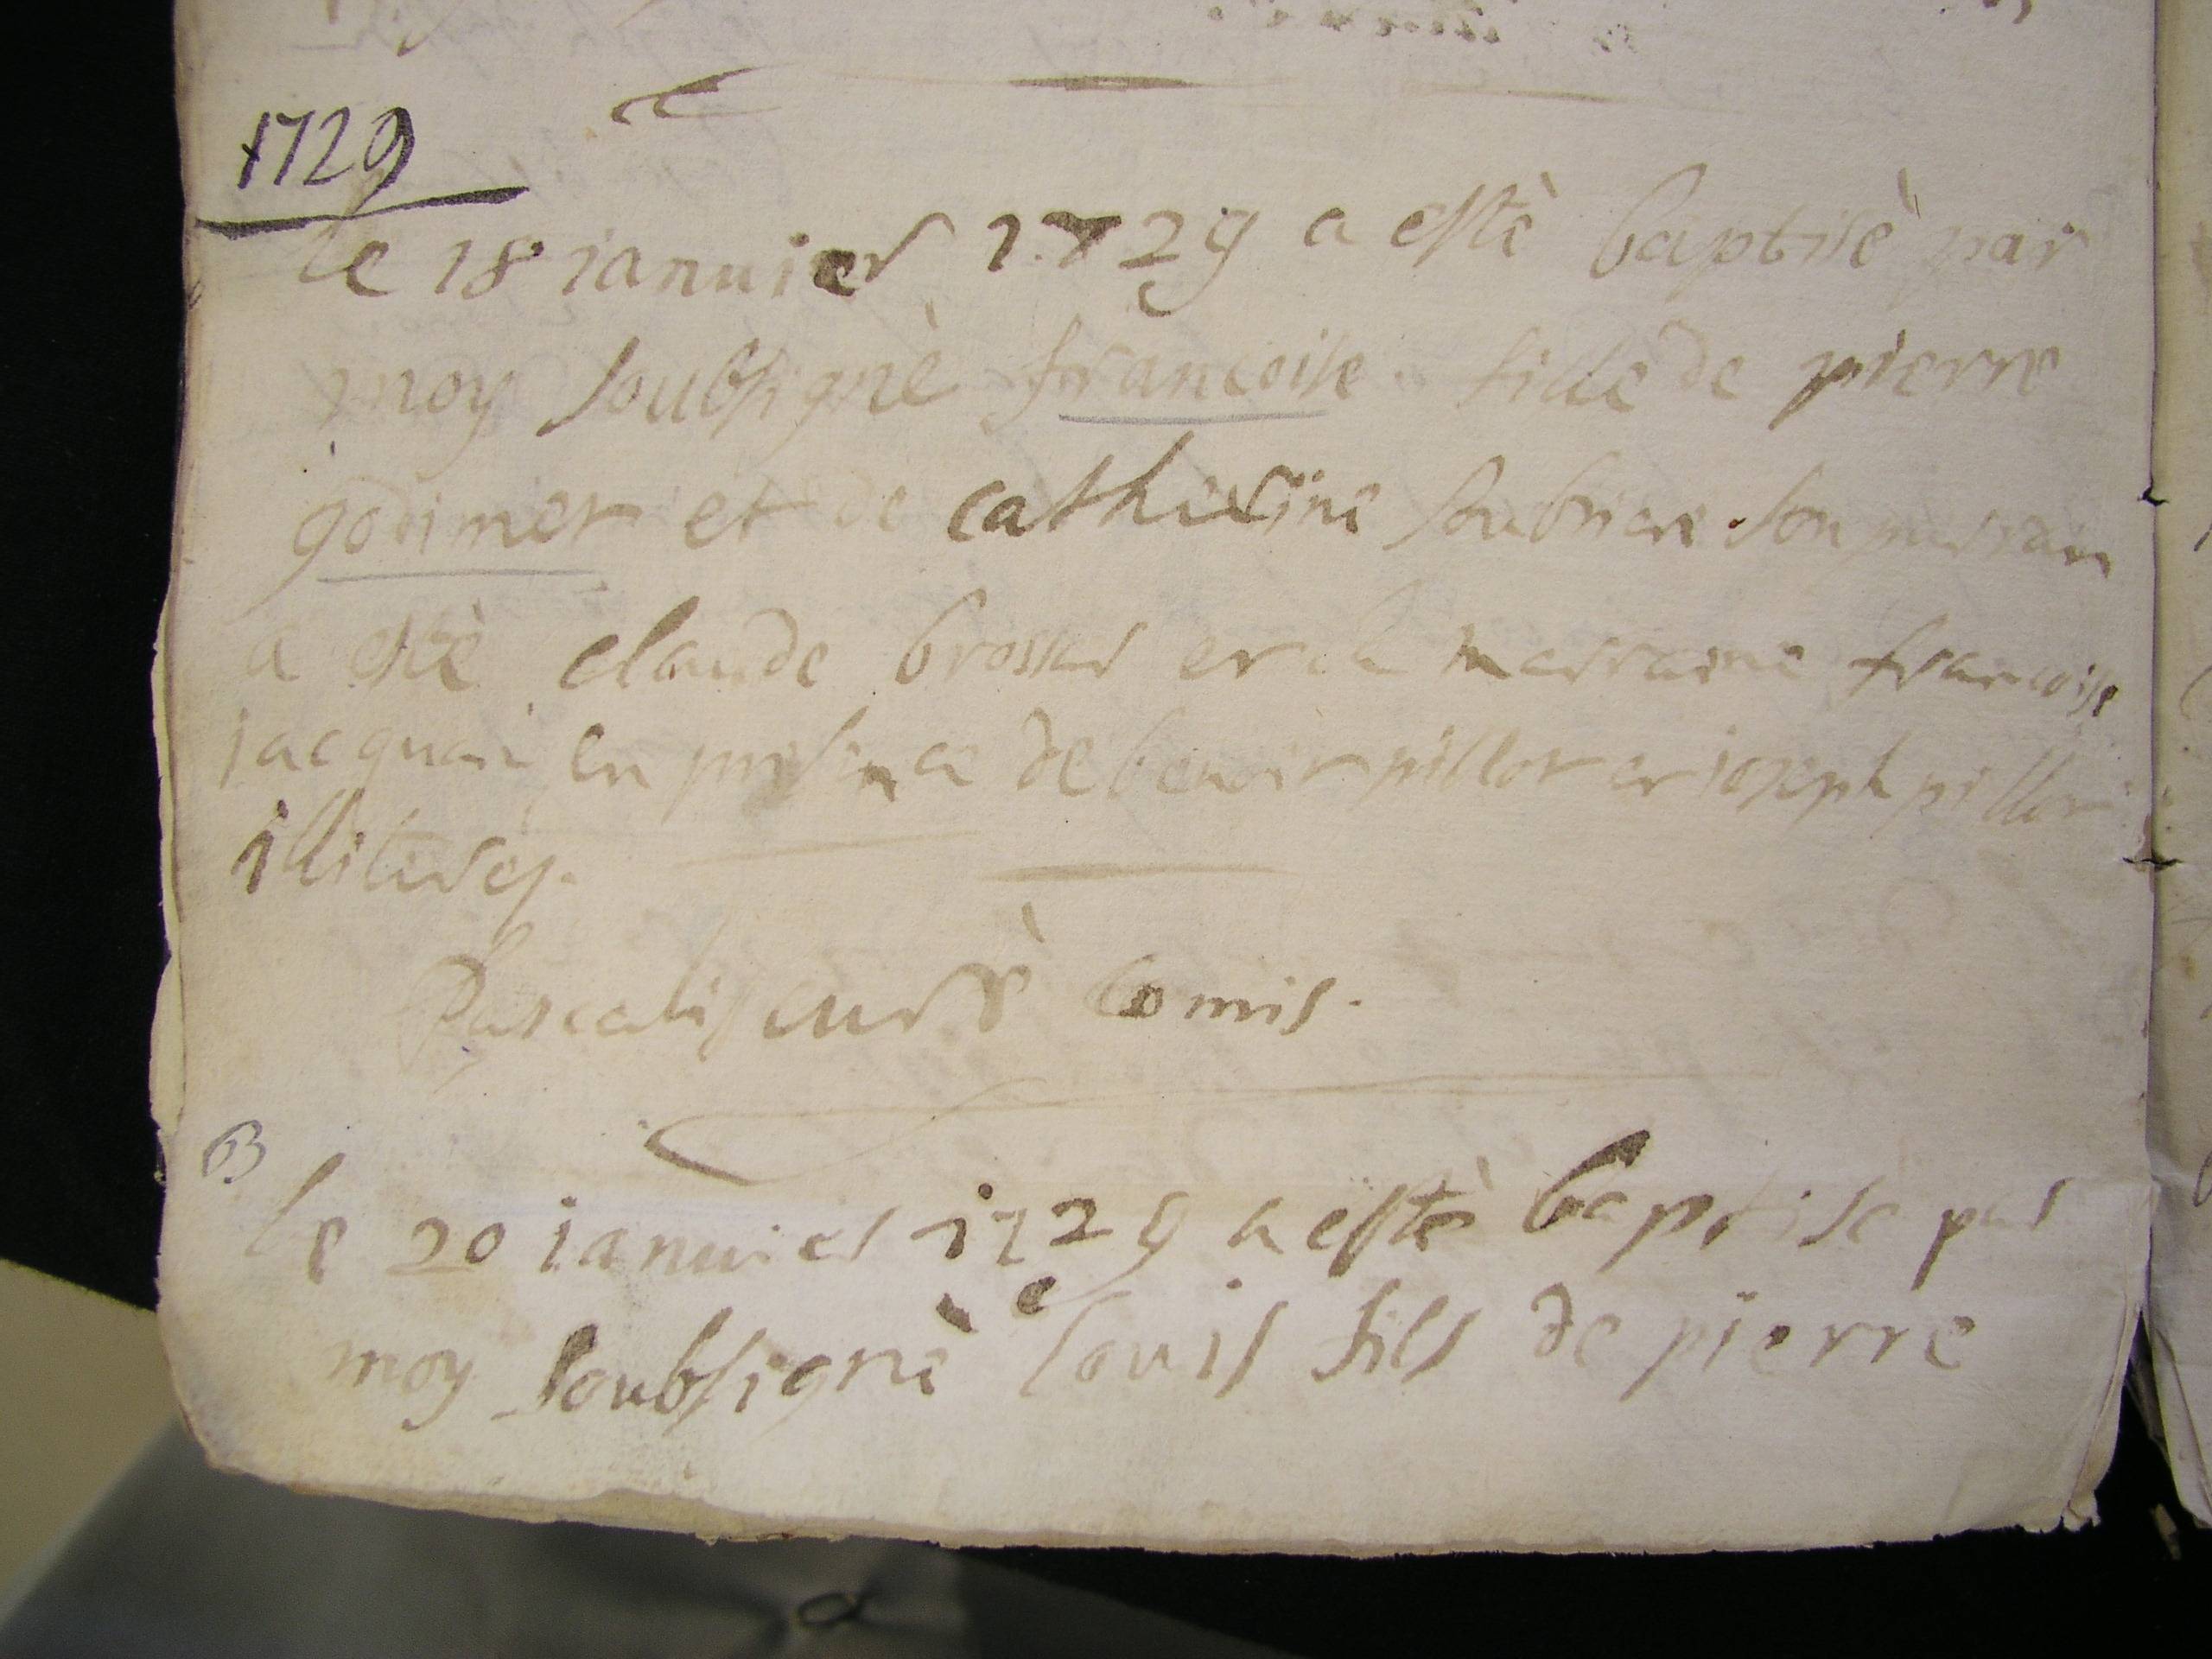 1729
Le 18 ianuier 1729 a estè baptisè par
moy soubsignè francoise fille de pierre
godimer et de catherine son parrain
a estè claude brossar et la marraine francoise
en presence de benoit pillot et ioseph pillot
illiteres.
curè comis.
B
Le 20 ianuier 1729 a estè baptise par
moy soubsignè louis fils de pierre